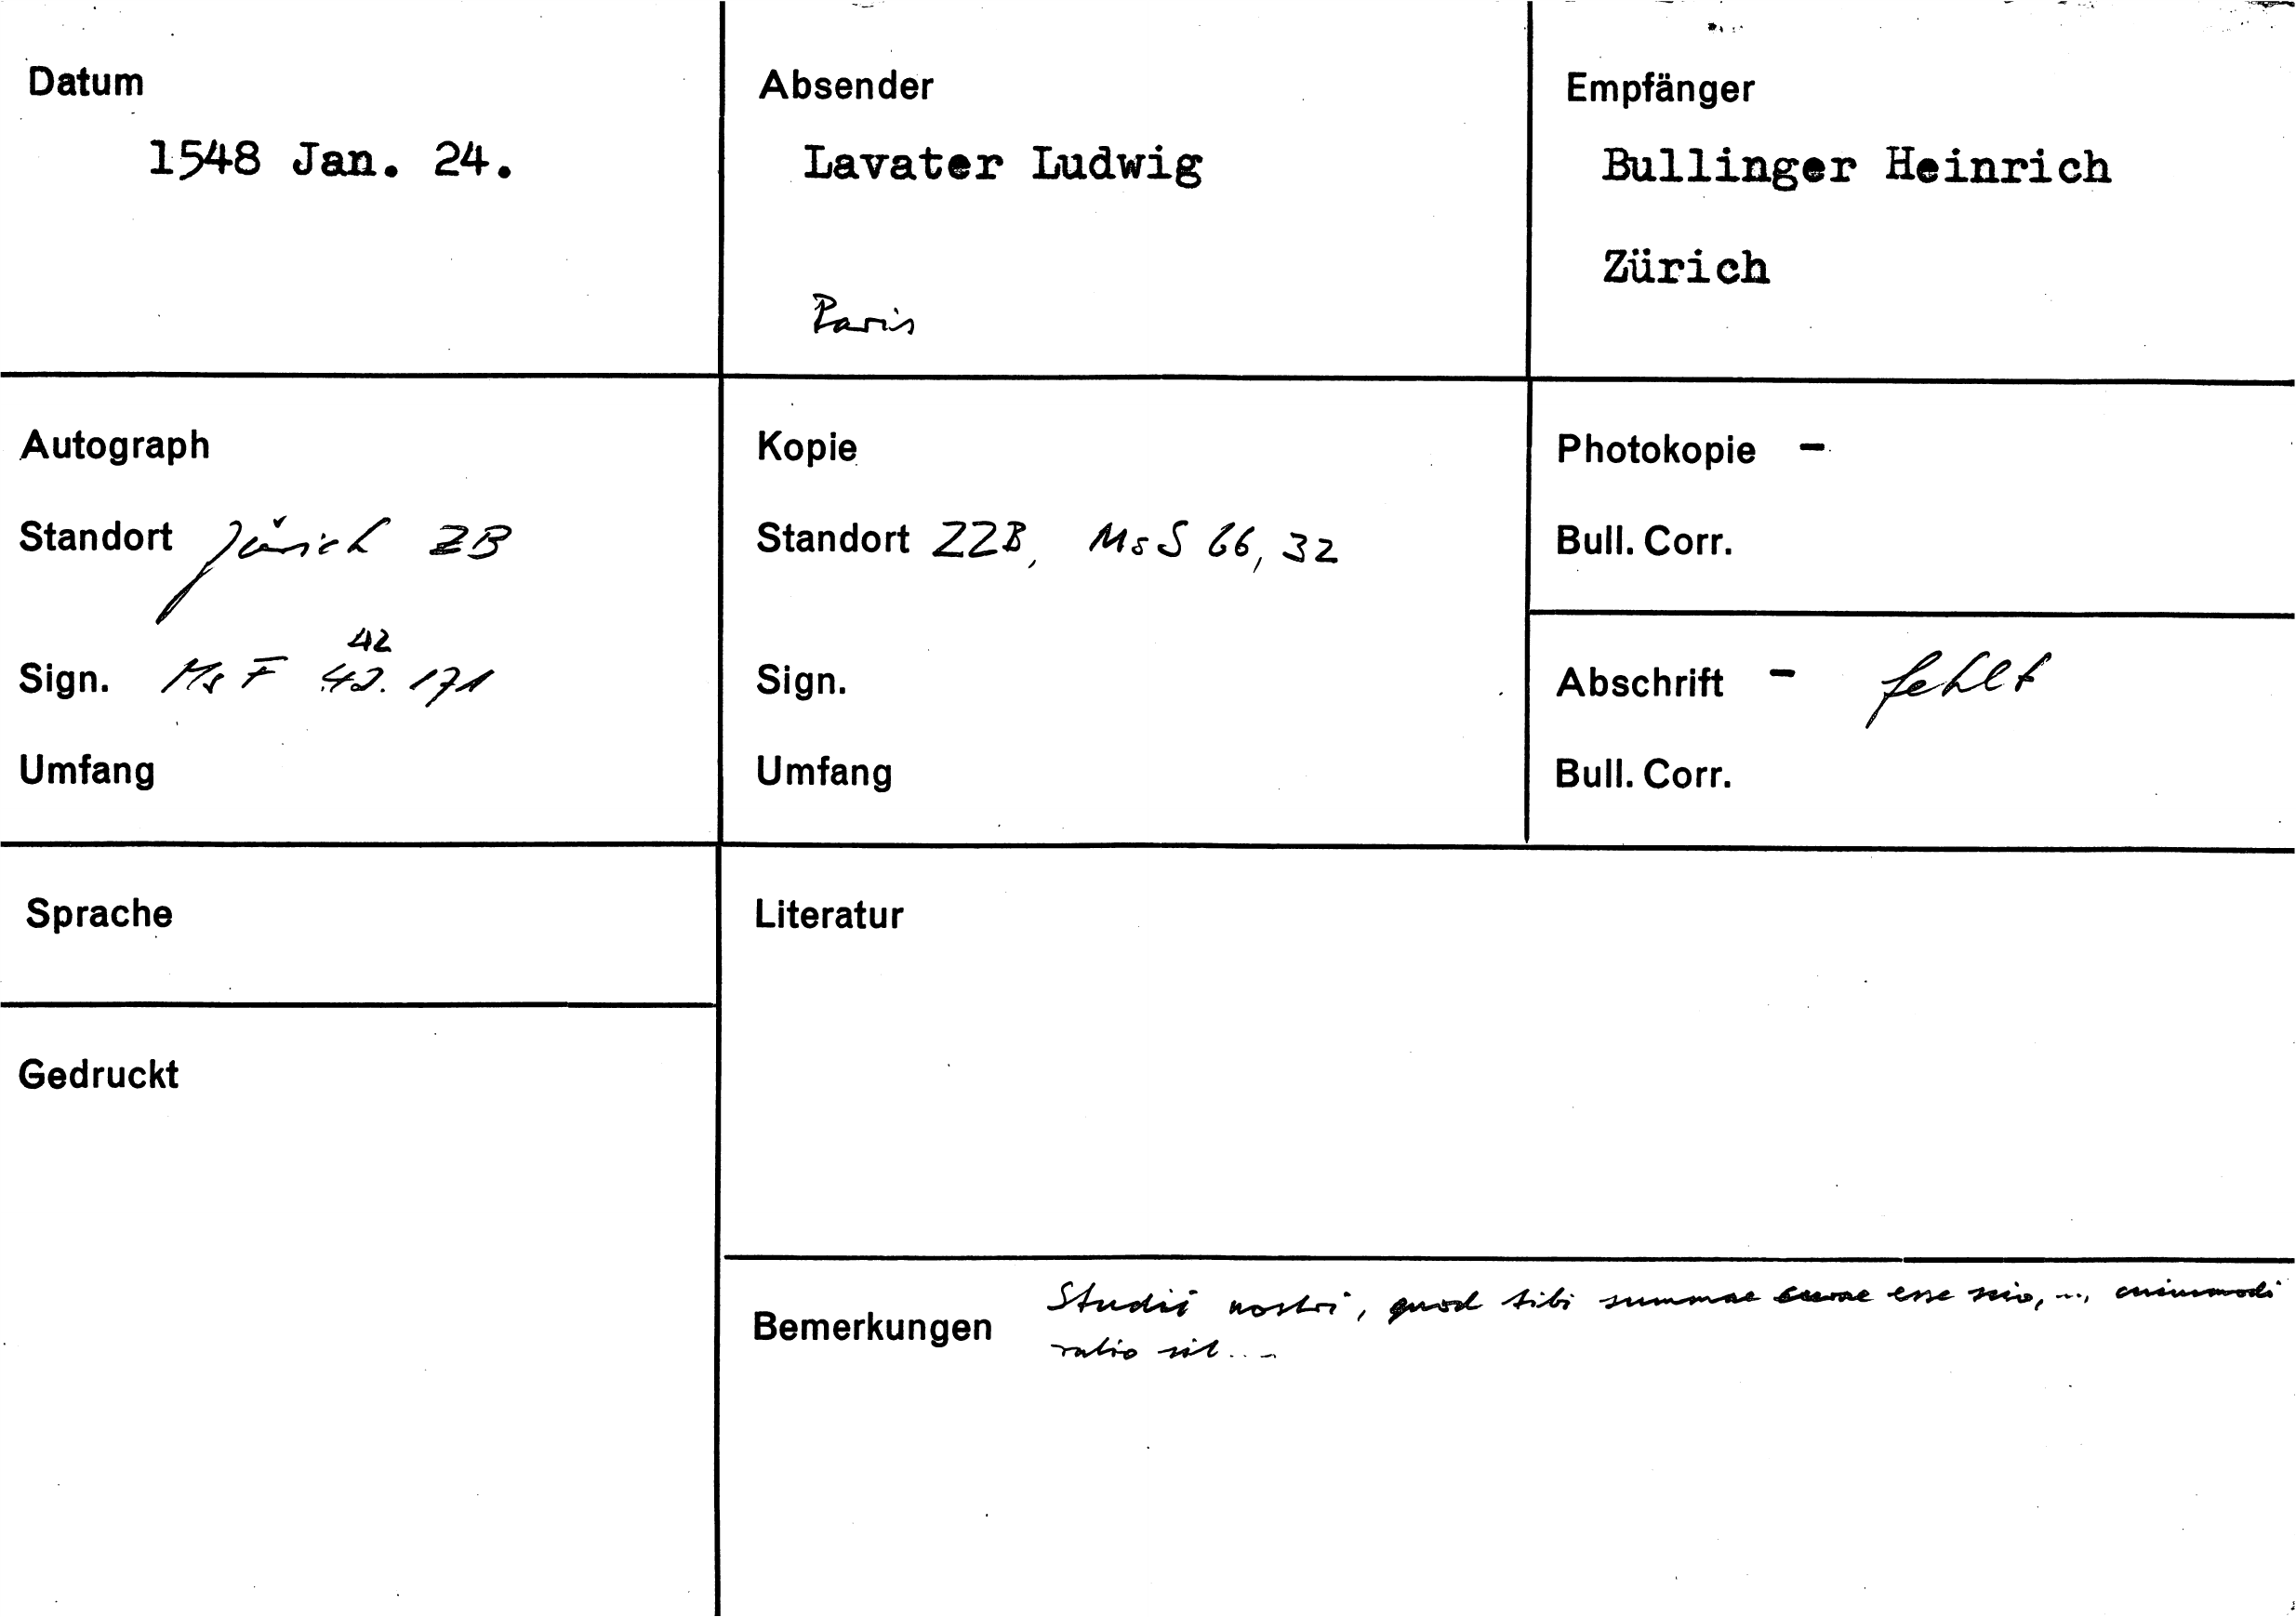 Datum
1548 Jan. 24.
Absender
Lavater Ludwig
Paris
Empfänger
Bullinger Heinrich
Zürich
Autograph
Standort Zürich ZB
42
Sign. Ms F 42. 171
Umfang
Kopie
Standort ZZB, Ms S 66, 32
Sign.
Umfang
Photokopie -
Bull. Corr.
Abschrift - fehlt
Bull. Corr.
Sprache
Gedruckt
Literatur
Bemerkungen
Studii nostri, quod tibi summae curae esse scio, ..., cuiusmodi
ratio sit...